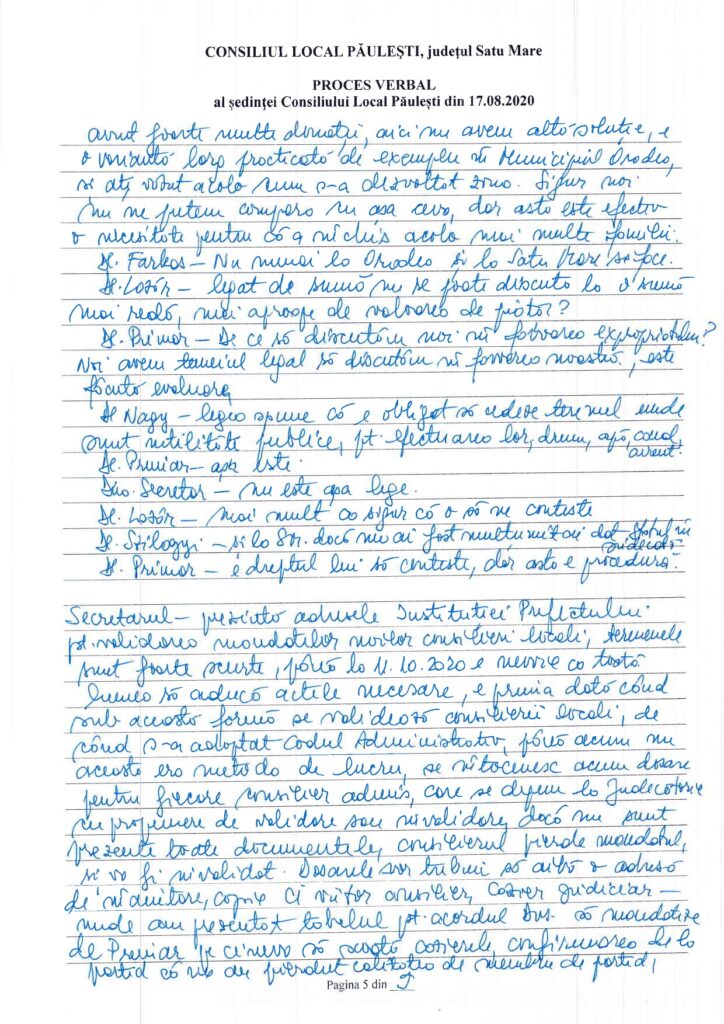 CONSILIUL LOCAL PĂULEȘTI, județul Satu Mare
PROCES VERBAL
al ședinței Consiliului Local Păulești din 17.08.2020
avut foarte multe donații, aici nu avem altă soluție, e
o variantă larg practicată de exemplu în Municipiul Oradea,
și ați văzut acolo cum s-a dezvoltat zona. Sigur noi
nu ne putem compara cu așa ceva, dar asta este efectiv
o necesitate pentru că a închis acolo mai multe familii.
Dl. Farkas – Nu numai la Oradea și la Satu Mare se face.
Dl. Lazăr – legat de sumă nu se poate discuta la o sumă
mai reală, mai aproape de valoarea de piață?
Dl. Primar – De ce să discutăm noi în favoarea expropriatului?
Noi avem temeiul legal să discutăm în favoarea noastră, este
făcută evaluare,
Dl Nagy – legea spune că e obligat să cedeze terenul unde
sunt utilități publice, pt. efectuarea lor, drum, apă, canal,
curent.
Dl. Primar – așa este.
Dna. Secretar – nu este așa lege.
Dl. Lazăr – mai mult ca sigur că o să ne conteste
Dl. Szilagyi – și la dacă nu ai fost mulțumit ai dat Statul în
judecată
Dl. Primar – e dreptul lui să conteste, dar asta e procedura.
Secretarul – prezintă adresele Instituției Prefectului
pt. validarea mandatelor noilor consilieri locali, termenele
sunt foarte scurte, până la 11.10.2020 e nevoie ca toată
lumea să aducă actele necesare, e prima dată când
sub această formă se validează consilierii locali, de
când s-a adoptat Codul Administrativ, până acum nu
aceasta era metoda de lucru, se întocmesc acum dosare
pentru fiecare consilier admis, care se depun la Judecătorie
cu propunere de validare sau invalidare, dacă nu sunt
prezente toate documentele, consilierul pierde mandatul,
și va fi invalidat. Dosarele vor trebui să aibă o adresă
de înaintare, copie CI viitor consilier, cazier judiciar –
unde am prezentat tabelul pt. acordul dvs. să mandateze
de Primar pe cineva să scoată cazierele, confirmarea de la
partid că nu au pierdut calitatea de membru de partid,
Pagina 5 din 9